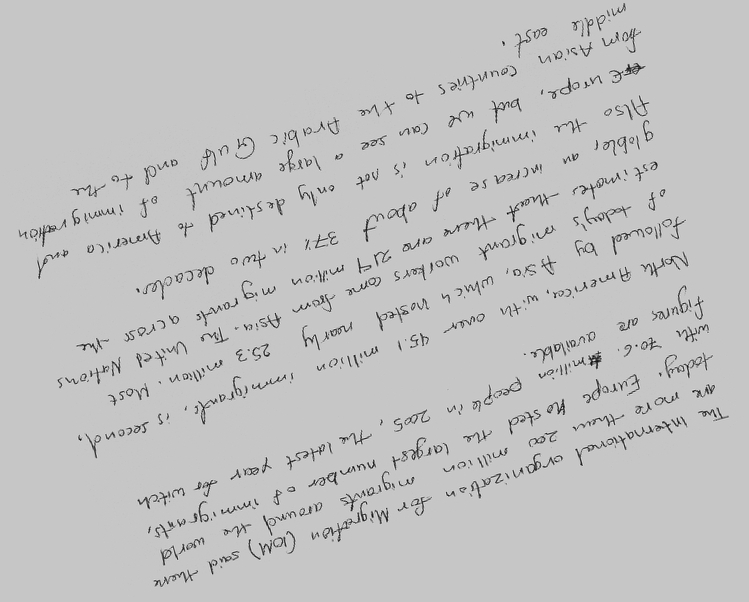 The International organization for Migration (IOM) said there
are more than 200 million migrants around the world
today. Europe hosted the largest number of immigrants,
with 70.6 million people in 2005, the latest year for witch
figures are available.
North America, with over 45.1 million immigrants, is second,
followed by Asia, which hosted nearly 25.3 million. Most
of today's migrant workers come from Asia. The United Nations
estimates that there are 214 million migrants across the
globle, an increase of about 37% in two decades.
Also the immigration is not only destined to America and
Europe, but we can see a large amount of immigration
form Asian countries to the Arabic Gulf and to the
middle east.